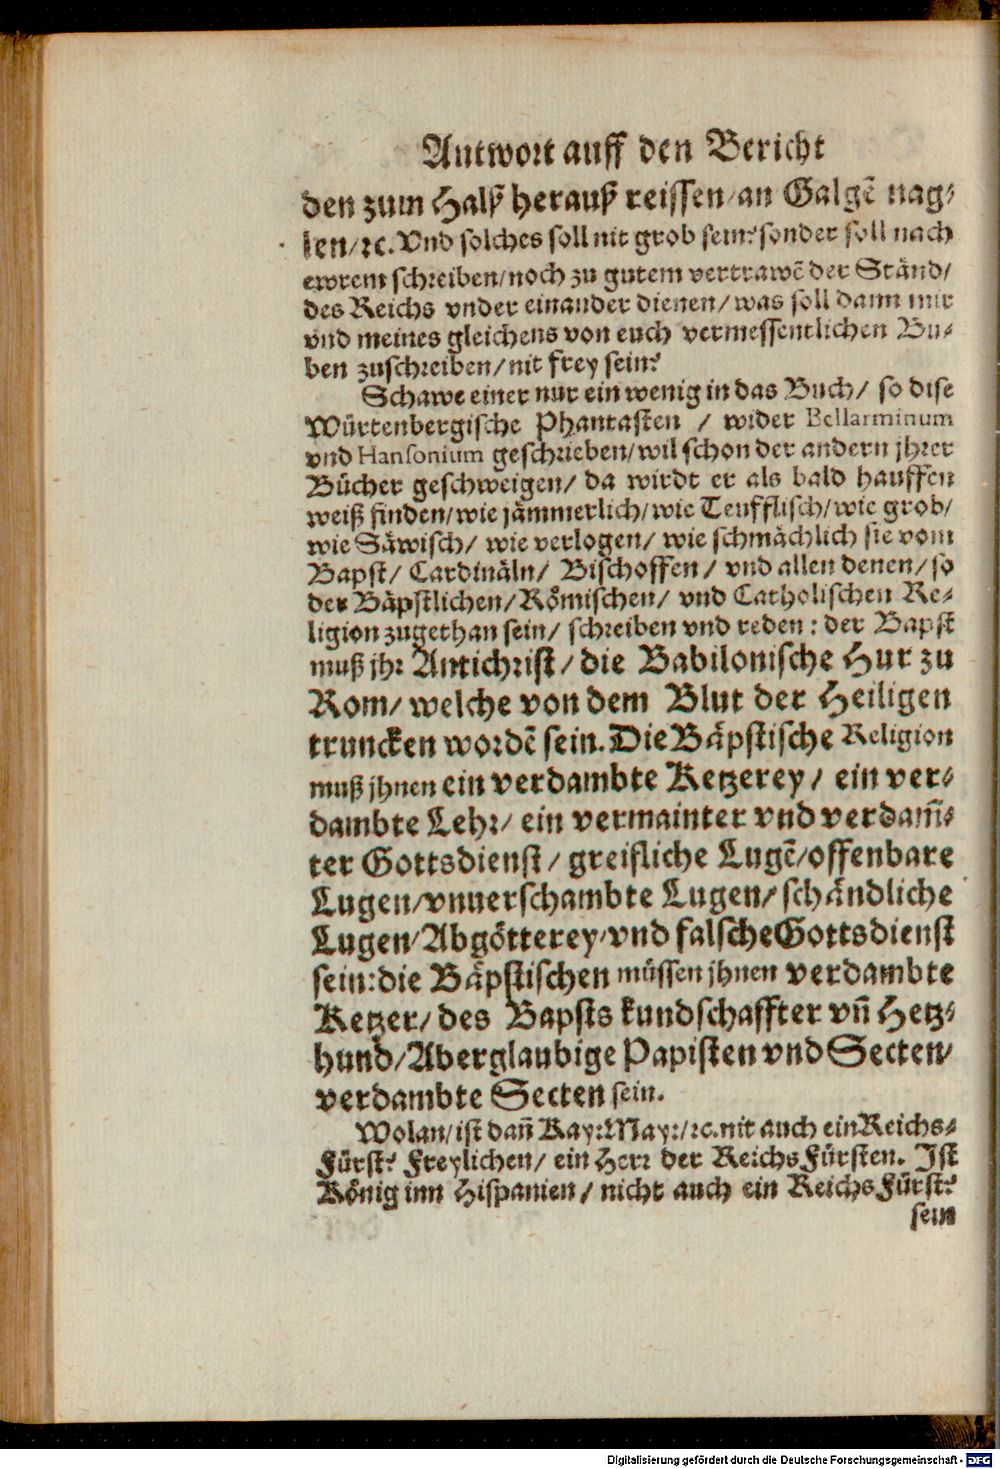 Antwort auff den Bericht
den zum Halß herauß reissen/an Galgẽ nag⸗
len/ꝛc. Vnd solches soll nit grob sein? sonder soll nach
ewrem schreiben/noch zu gutem vertrawẽ der Ständ/
des Reichs vnder einander dienen/was soll dann mir
vnd meines gleichens von euch vermessentlichen Bu⸗
ben zuschreiben/nit frey sein?
Schawe einer nur ein wenig in das Buch/ so dise
Würtenbergische Phantasten / wider Bellarminum
vnd Hansonium geschrieben/wil schon der andern jhrer
Bücher geschweigen/ da wirdt er als bald hauffen
weiß finden/wie jämmerlich/wie Teufflisch/wie grob/
wie Säwisch/ wie verlogen/ wie schmächlich sie vom
Bapst/ Cardinäln/ Bischoffen/ vnd allen denen/so
der Bäpstlichen/Römischen/ vnd Catholischen Re⸗
ligion zugethan sein/ schreiben vnd reden: der Bapst
muß jhr Antichrist/die Babilonische Hur zu
Rom/ welche von dem Blut der Heiligen
truncken wordẽ sein. Die Bäpstische Religion
muß jhnen ein verdambte Ketzerey/ ein ver⸗
dambte Lehr/ ein vermainter vnd verdam̃⸗
ter Gottsdienst/ greifliche Lugẽ/offenbare
Lugen/vnuerschambte Lugen/schändliche
Lugen/Abgötterey/vnd falsche Gottsdienst
sein: die Bäpstischen müssen jhnen verdambte
Ketzer/ des Bapsts kundschaffter vñ Hetz⸗
hund/Aberglaubige Papisten vnd Secten/
verdambte Secten sein.
Wolan/ist dañ Kay: May:/ꝛc. nit auch ein Reichs⸗
Fürst? Freylichen/ ein Herr der ReichsFürsten. Ist
König inn Hispanien/ nicht auch ein ReichsFürst?
sein
Digitalisierung gefördert durch die Deutsche Forschungsgemeinschaft - DFG